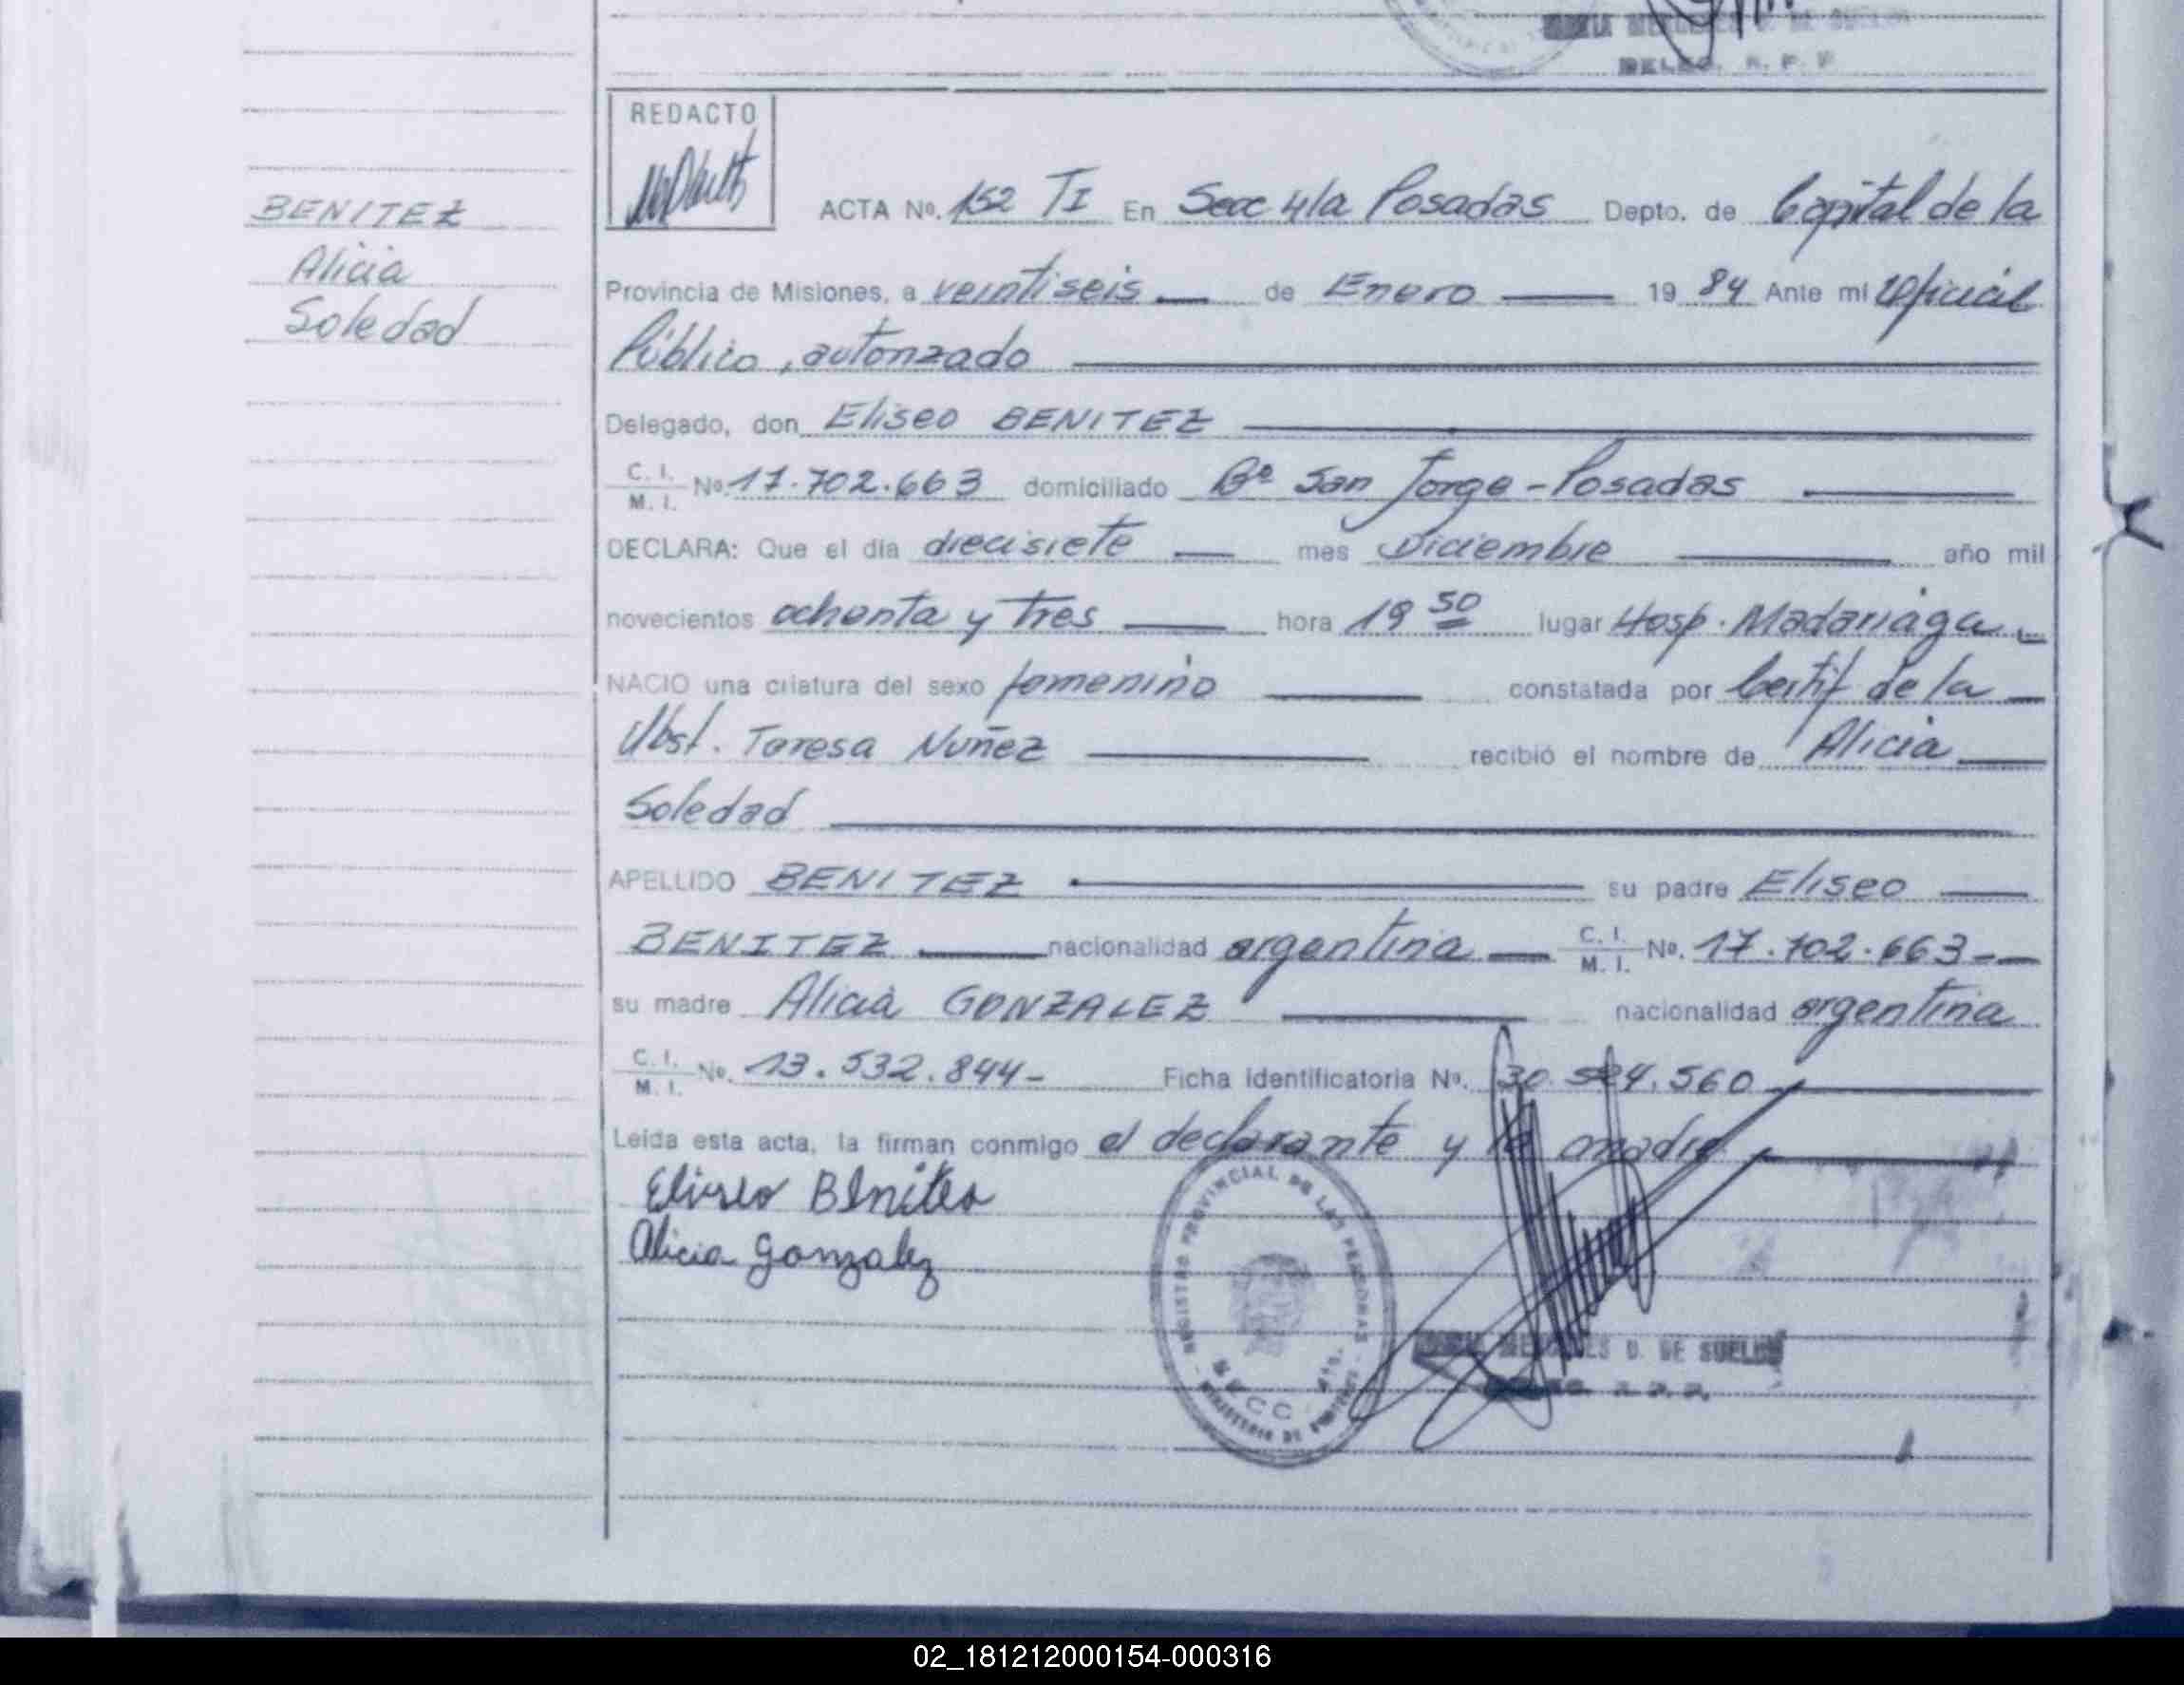 DELEG. R. P. P.
REDACTO
BENITEZ
Alicia
Soledad
ACTA Nº. 152 TI En Secc 4/a Posadas Depto. de Capital de la
Provincia de Misiones, a veintiseis — de Enero — 19 84 Ante mí Oficial
Público, autorizado
Delegado, don Eliseo BENITEZ
C. I. / M. I. Nº 17.702.663 domiciliado Bº San Jorge - Posadas
DECLARA: Que el día diecisiete — mes Diciembre — año mil
novecientos ochenta y tres — hora 19 50 lugar Hosp. Madariaga
NACIO una criatura del sexo femenino — constatada por Certif de la
Obst. Teresa Nuñez — recibió el nombre de Alicia
Soledad
APELLIDO BENITEZ — su padre Eliseo
BENITEZ — nacionalidad argentina — C. I. / M. I. Nº. 17.702.663
su madre Alicia GONZALEZ — nacionalidad argentina
C. I. / M. I. Nº. 13.532.844- Ficha Identificatoria Nº. 30. 4.560
Leída esta acta, la firman conmigo el declarante y la madre
Eliseo Benites
Alicia Gonzalez
REGISTRO PROVINCIAL DE LAS PERSONAS
MINISTERIO DE
D. DE SUELDO
02_181212000154-000316